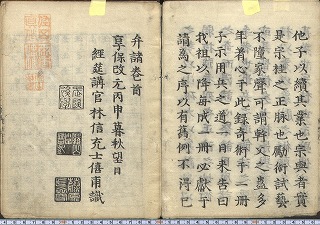 他子以續其業也宗與者實
是宗桂之正脉也勵術試藝
不墮家聲可謂幹父之蠱多
年著心于此録奇術于二冊
子示用兵之道一日来告曰
我祖以降毎成一冊必獻乎
請為之序以有舊例不得已
弁諸巻首
享保改元丙申暮秋望日
經筵講官林信充士僖甫識